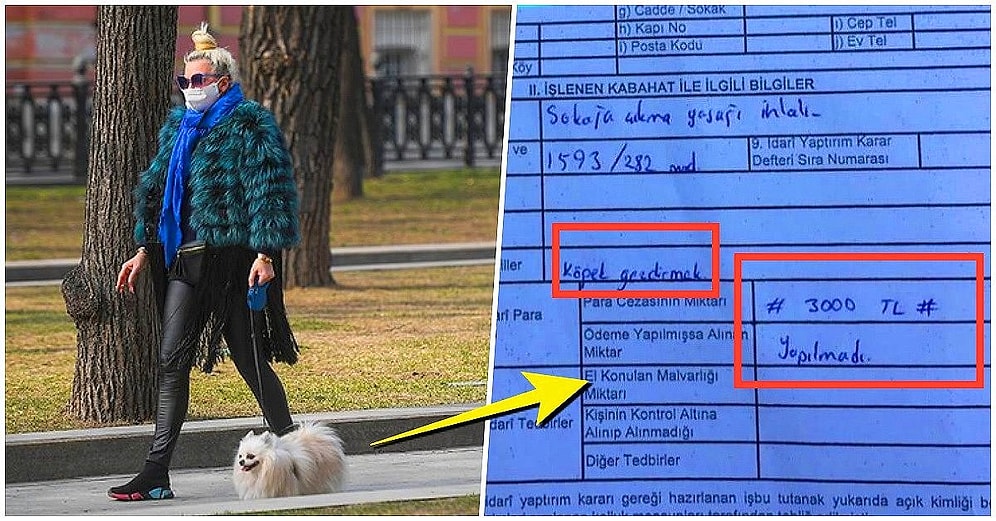 g) Cadde / Sokak
h) Kapı No
ı) Cep Tel
i) Posta Kodu
j) Ev Tel
köy
II. İŞLENEN KABAHAT İLE İLGİLİ BİLGİLER
Sokağa çıkma yasağı ihlali
ve
1593/282 md.
9. İdari Yaptırım Karar
Defteri Sıra Numarası
iller
Köpek gezdirmek
arî Para
Para Cezasının Miktarı
# 3000 TL #
Ödeme Yapılmışsa Alınan
Miktar
Yapılmadı.
El Konulan Malvarlığı
Miktarı
darî Tedbirler
Kişinin Kontrol Altına
Alınıp Alınmadığı
Diğer Tedbirler
idarî yaptırım kararı gereği hazırlanan işbu tutanak yukarıda açık kimliği be